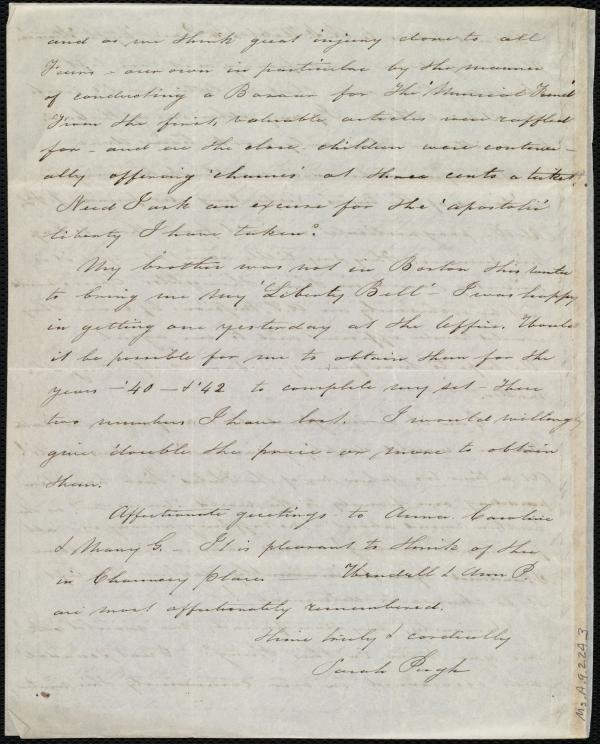 and as we think great injury done to all
Fairs - our own in particular by the manner
of conducting a Bazaar for The 'Musical Fund'
From the first, valuable articles were raffled
for - and in the close children were continu-
ally offering 'chances' at three cents a ticket.
Need I ask an excuse for the 'apostolic'
liberty I have taken?
My brother was not in Boston this winter
to bring me my 'Liberty Bell' - I was happy
in getting one yesterday at the Office. Would
it be possible for me to obtain them for the
years - '40 - & '42 to complete my set - These
two numbers I have lost. - I would willingly
give double the price - or more to obtain
them.
Affectionate greetings to Anna, Caroline
& Mary G. - It is pleasant to think of thee
in Chauncy place. Wendell & Ann P.
are most affectionately remembered.
Thine truly & cordially
Sarah Pugh
Ms. A. 9. 2. 24. 3